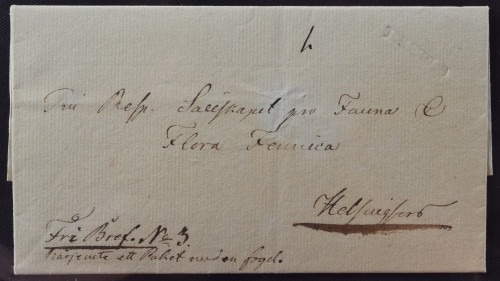 1.
Till Resp. Sällskapet pro Fauna &
Flora Fennica
Helsingfors
Fri Bref. No 3.
Härjemte ett Paket med en fogel.